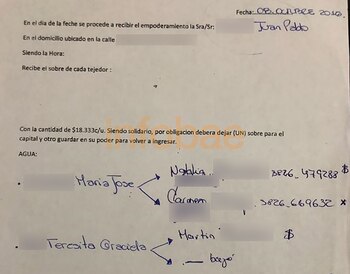 Fecha: 08 OCTUBRE 2019.
En el día de la feche se procede a recibir el empoderamiento la Sra/Sr:
Juan Pablo
En el domicilio ubicado en la calle
Siendo la Hora:
Recibe el sobre de cada tejedor :
Con la cantidad de $18.333c/u. Siendo solidario, por obligacion debera dejar (UN) sobre para el
capital y otro guardar en su poder para volver a ingresar.
infobae
AGUA:
Natalia 3826_479288 $
Maria Jose
Carmen 3826_669632 x
Martin $
Teresita Graciela
bajó